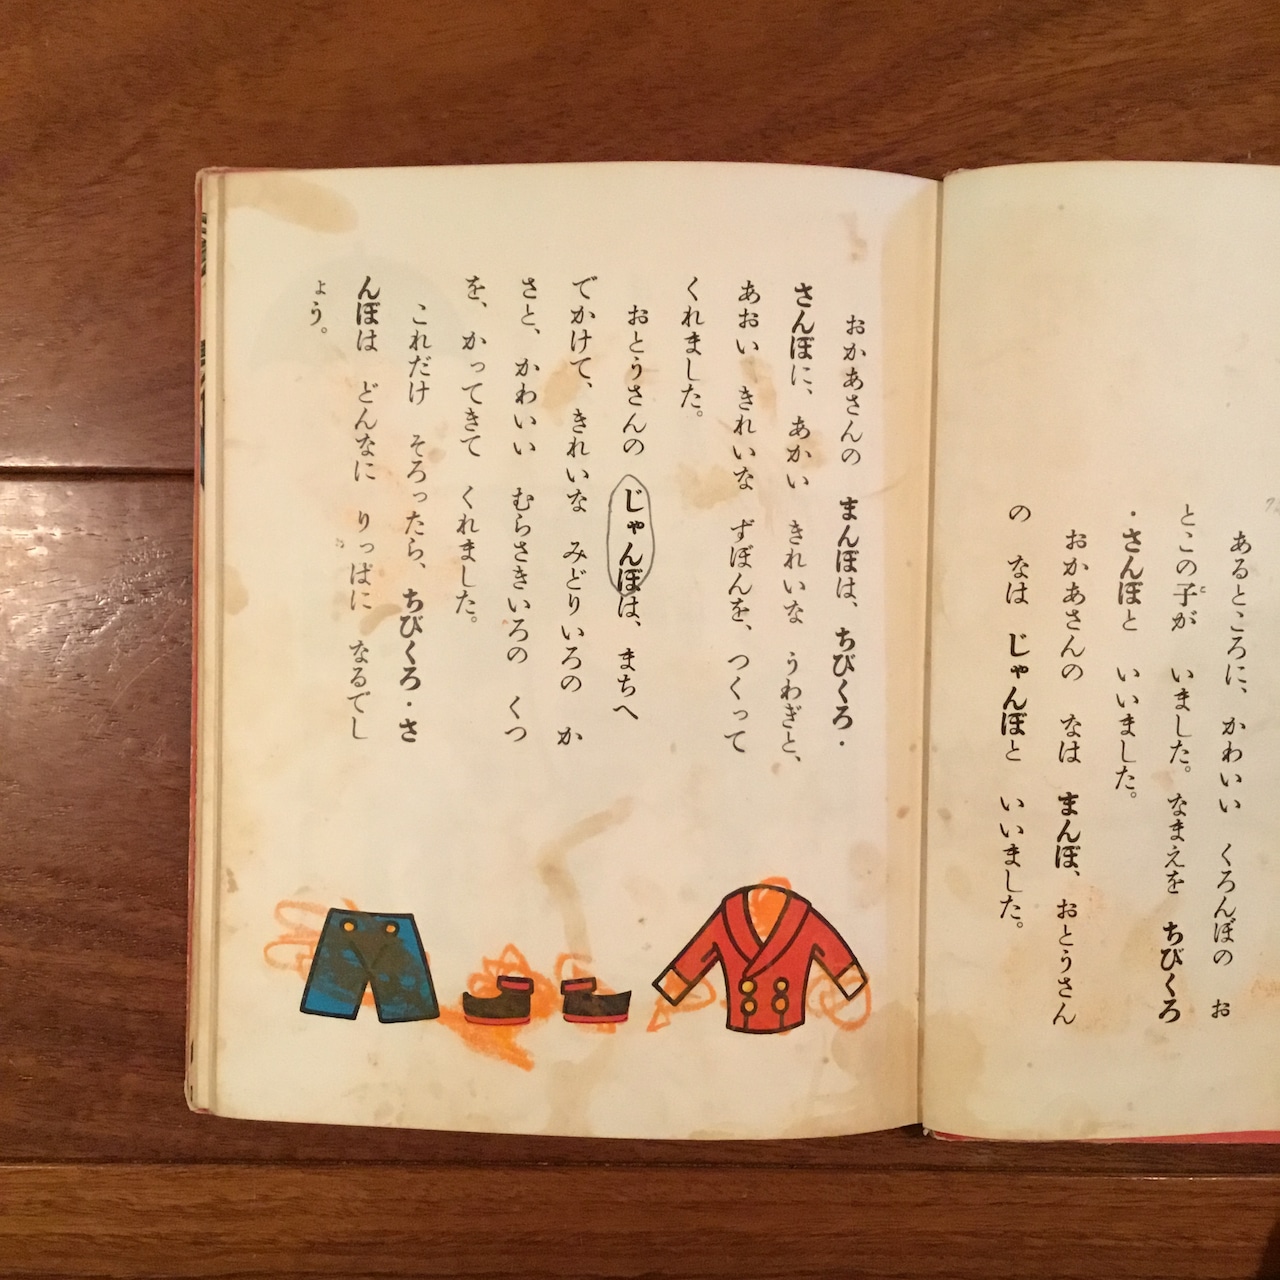 あるところに、かわいい くろんぼの お
とこの子が いました。なまえを ちびくろ
・さんぼと いいました。
おかあさんの なは まんぼ、おとうさん
の なは じゃんぼと いいました。
おかあさんの まんぼは、ちびくろ・
さんぼに、あかい きれいな うわぎと、
あおい きれいな ずぼんを、つくって
くれました。
おとうさんの じゃんぼは、まちへ
でかけて、きれいな みどりいろの か
さと、かわいい むらさきいろの くつ
を、かってきて くれました。
これだけ そろったら、ちびくろ・さ
んぼは どんなに りっぱに なるでし
ょう。